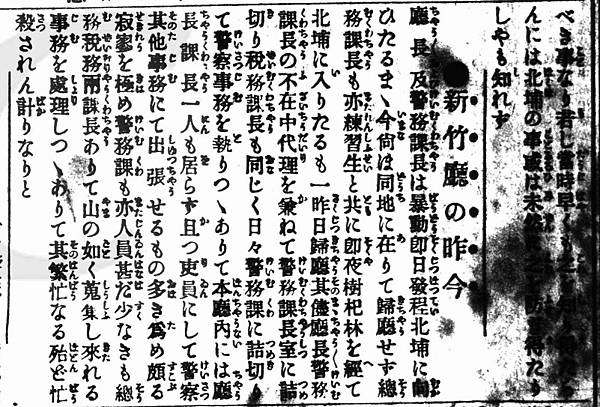 べき事なり若し當時早
んには北埔の事變は未然に
しやも知れず
●新竹廳の昨今
廳長及警務課長は暴動即日發程北埔に
ひたるまゝ今尚は同地に在りて歸廳せず總
務課長も亦練習生と共に即夜樹杞林を經て
北埔に入りたるも一昨日歸廳其儘廳長警務
課長の不在中代理を兼ねて警務課長室に詰
切り稅務課長も同じく日々警務課に詰切り
て警察事務を執りつゝありて本廳內には廳
長課長一人も居らず且つ吏員にして警察
其他事務にて出張せるもの多き爲め頗る
寂寥を極め警務課も亦人員甚だ少なきも總
務稅務兩課長ありて山の如く蒐集し來れる
事務を處理しつゝありて其繁忙なる殆ど忙
殺されん計りなりと